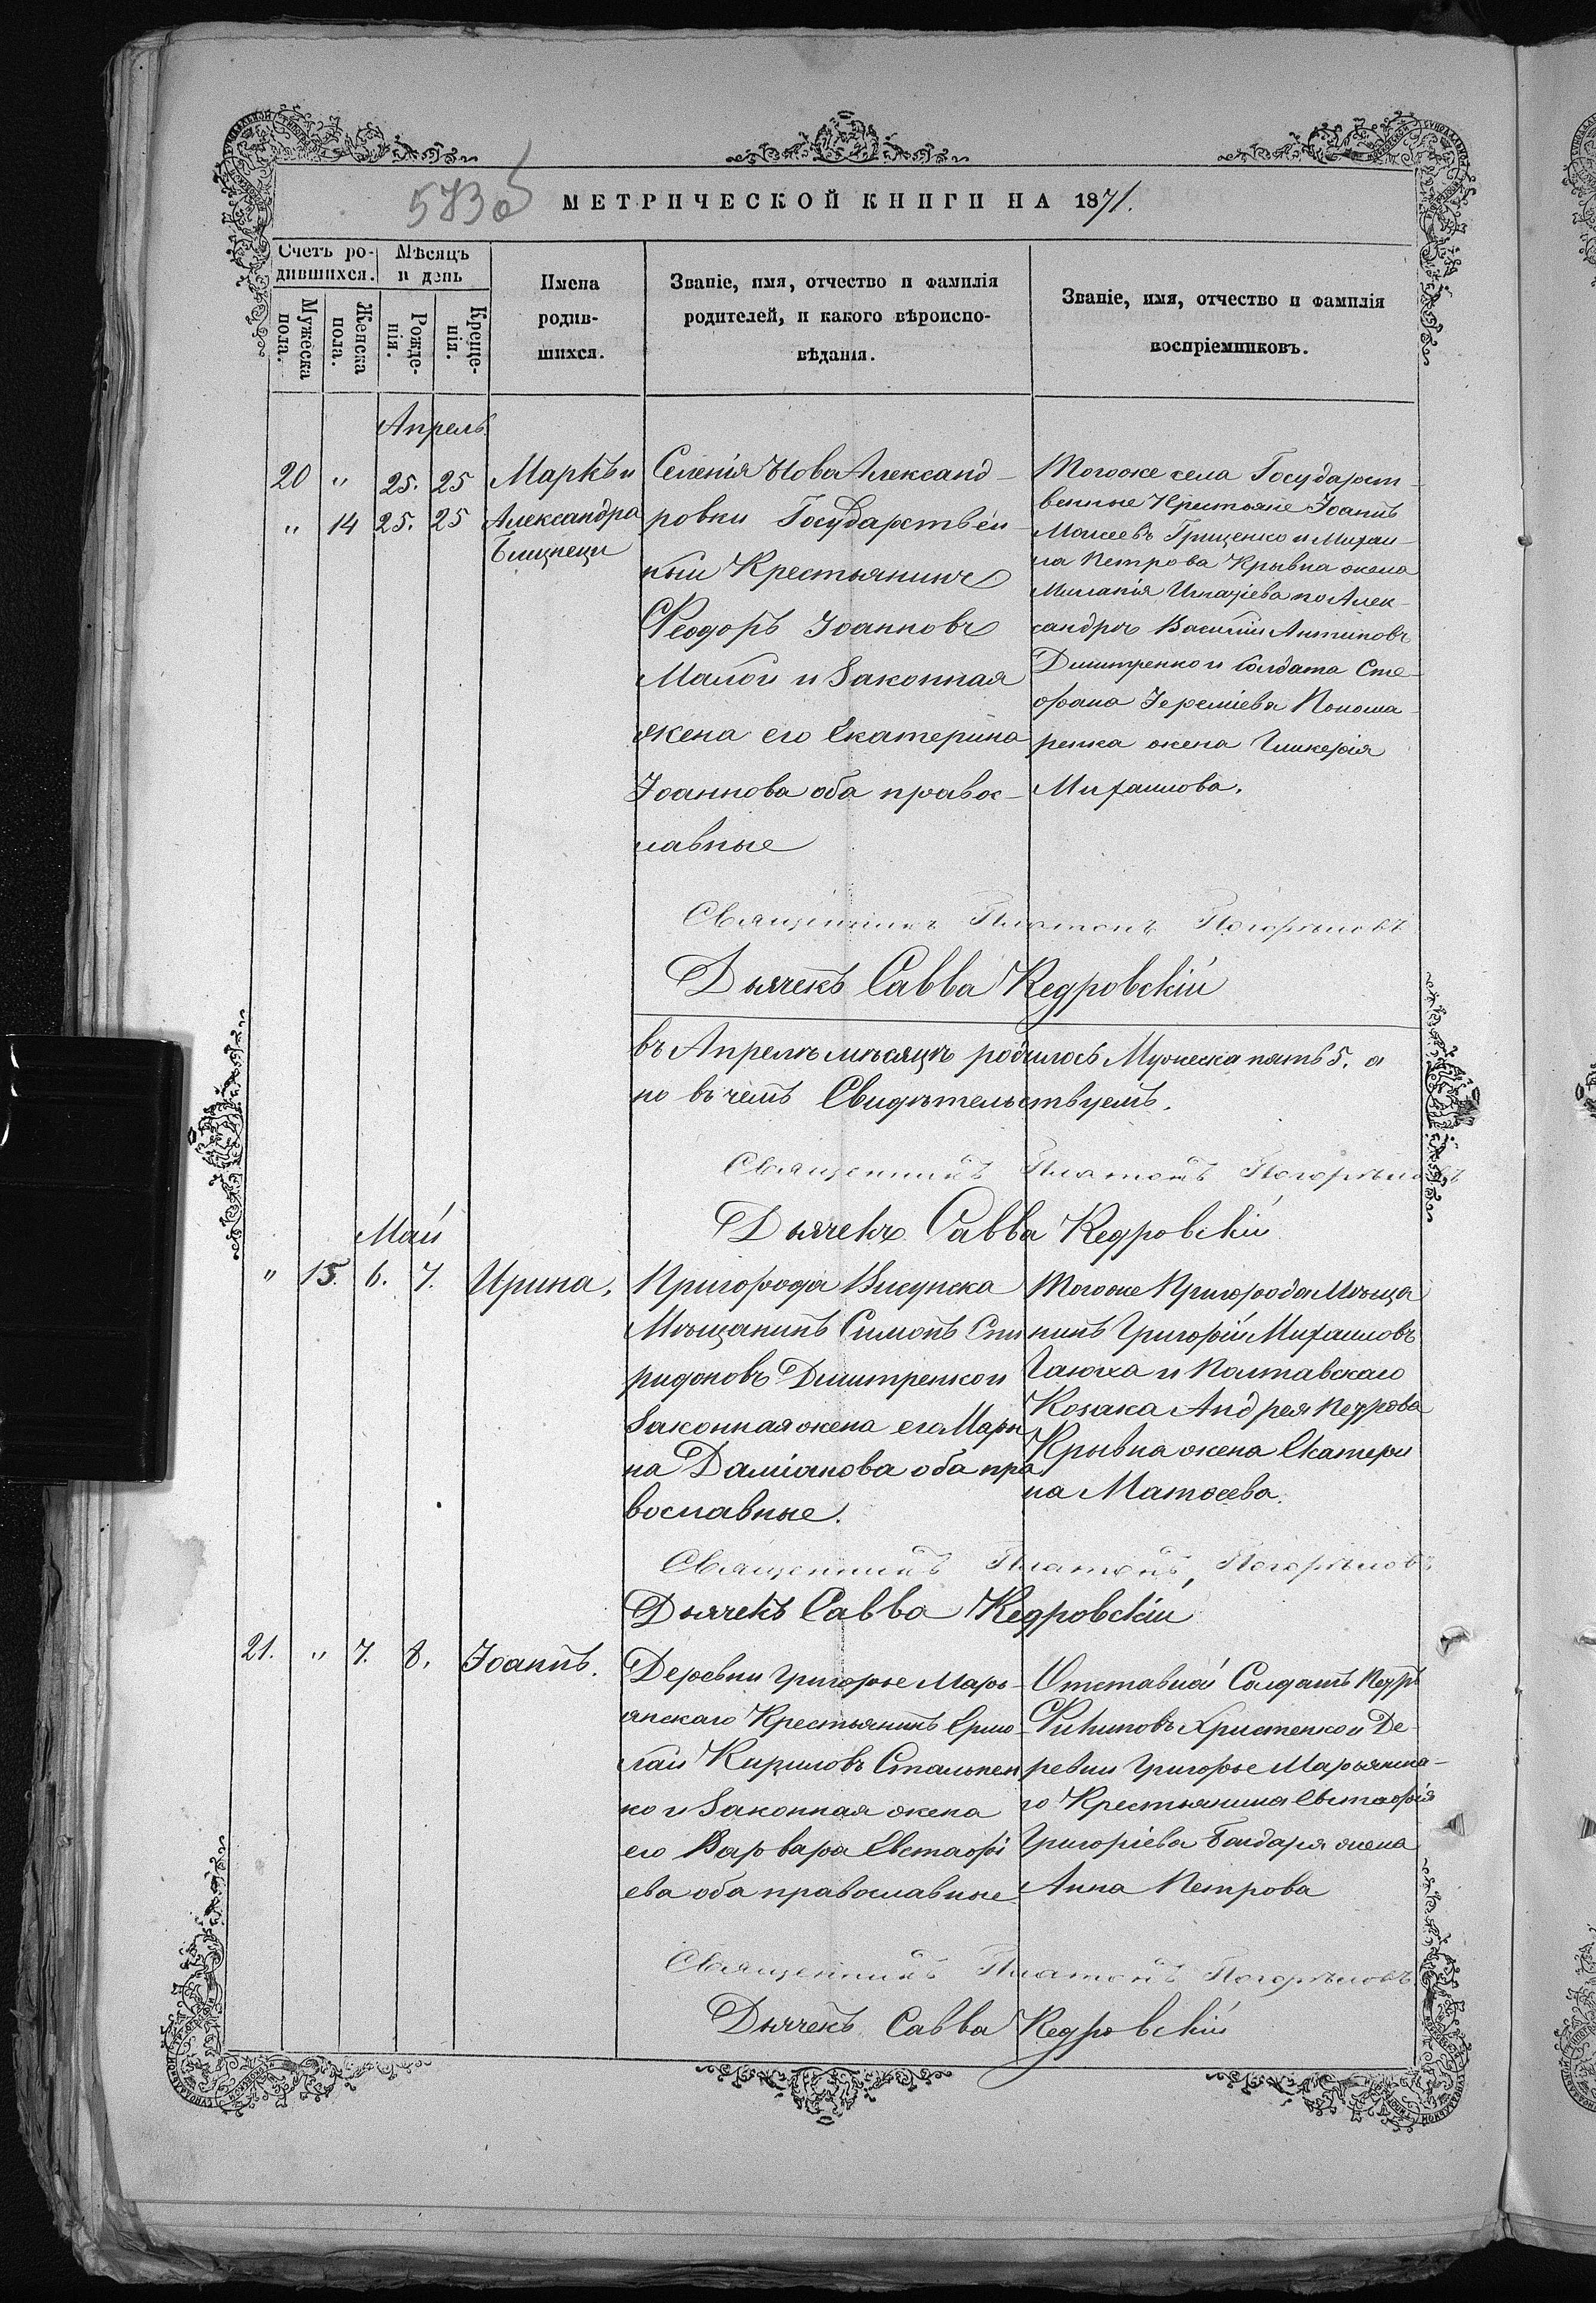 583об
МЕТРИЧЕСКОЙ КНИГИ НА 1871.
Счетъ родившихся.
Мужеска пола.
Женска пола.
Мѣсяцъ и день
Рожденія.
Крещенія.
Имена родившихся.
Званіе, имя, отчество и фамилія родителей, и какого вѣроисповѣданія.
Званіе, имя, отчество и фамилія воспріемниковъ.
Апрель
20 " 25. 25 Маркъ и
" 14 25. 25 Александра
близнеци
Селенія НовоАлександ-
ровки Государствен-
ный Крестьянинъ
Ѳеодоръ Іоанновъ
Малой и Законная
жена его Екатерина
Іоаннова оба правос-
лавные
Тогоже села Государст-
венные Крестьяне Іоаннъ
Моисеевъ Гриценко и Михаи-
ла Петрова Крывца жена
Миланія Игнатіева по Алек-
сандрѣ Василій Антиповъ
Дмитренко и Солдата Сте-
фана Іереміева Понома-
ренка жена Гликерія
Михаилова.
Священникъ Платонъ Погорѣловъ
Дьячекъ Савва Кедровскій
въ Апрелѣ мѣсяцѣ родилось Мужеска пять 5. а
въ чемъ Свидѣтельствуемъ.
Священникъ Платонъ Погорѣловъ
Дьячекъ Савва Кедровскій
Май
" 15. 6. 7. Ирина.
Пригорода Висунска
Мѣщанинъ Симонъ Спи
ридоновъ Дмитренко и
Законная жена его Мари
на Даміанова оба пра
вославные.
Тогоже Пригорода Мѣща
нинъ Григорій Михаиловъ
и Полтавскаго
Козака Андрея Петрова
Крывца жена Екатери
на Матѳеева.
Священникъ Платонъ Погорѣловъ
Дьячекъ Савва Кедровскій
21. " 7. 8. Іоаннъ.
Деревни Григорье Марь-
янскаго Крестьянинъ Ермо-
лай Кириловъ Стальнен
ко и Законная жена
его Варвара Евстафі
ева оба православные
Отставной Солдатъ Петръ
Филиповъ Христенко и Де-
ревни Григорье Марьянска-
го Крестьянина Евстафія
Григоріева Бандаря жена
Анна Петрова
Священникъ Платонъ Погорѣловъ
Дьячекъ Савва Кедровскій